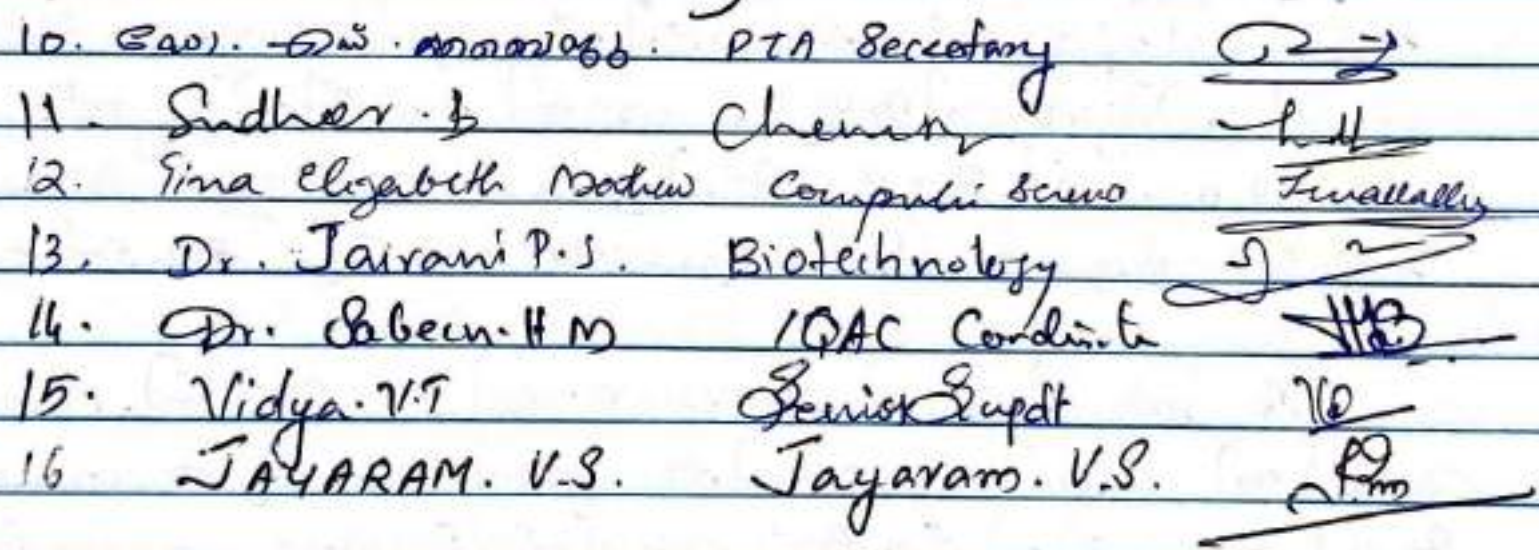 10. ഡോ. എസ്. PTA Secretary
11. Sudheer. b Chemistry
12. Tina Elizabeth Mathew Computer Science
13. Dr. Jairani P.S. Biotechnology
14. Dr. Sabeen. H M IQAC Cordinato
15. Vidya. V.T Senior Supdt
16 JAYARAM. V.S. Jayaram. V.S.